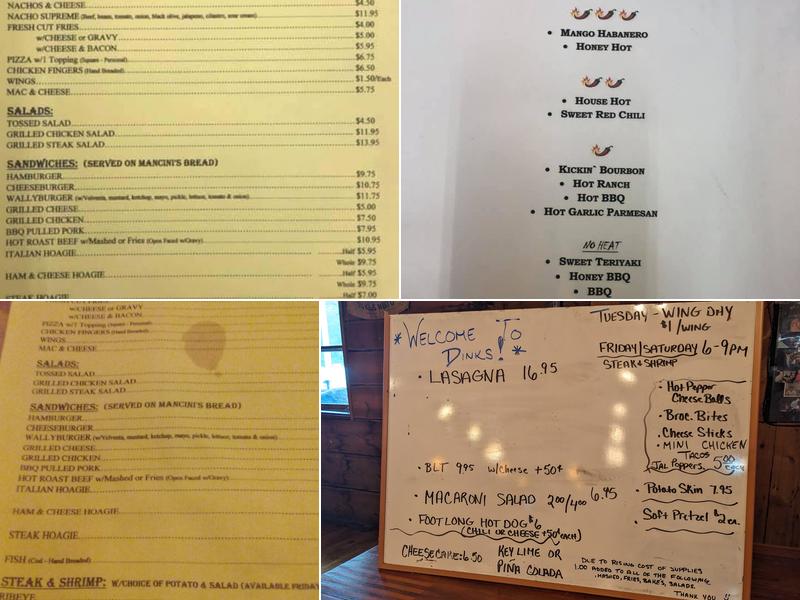 NACHOS & CHEESE $4.50
NACHO SUPREME (Beef, beans, tomato, onion, black olive, jalapeno, cilantro, sour cream) $11.95
FRESH CUT FRIES $4.00
w/CHEESE or GRAVY $5.00
w/CHEESE & BACON $5.95
PIZZA w/1 Topping (Square - Personal) $6.75
CHICKEN FINGERS (Hand Breaded) $6.50
WINGS $1.50/Each
MAC & CHEESE $5.75
SALADS:
TOSSED SALAD $4.50
GRILLED CHICKEN SALAD $11.95
GRILLED STEAK SALAD $13.95
SANDWICHES: (SERVED ON MANCINI'S BREAD)
HAMBURGER $9.75
CHEESEBURGER $10.75
WALLYBURGER (w/Velveeta, mustard, ketchup, mayo, pickle, lettuce, tomato & onion) $11.75
GRILLED CHEESE $5.00
GRILLED CHICKEN $7.50
BBQ PULLED PORK $7.95
HOT ROAST BEEF w/Mashed or Fries (Open Faced w/Gravy) $10.95
ITALIAN HOAGIE Half $5.95
Whole $9.75
HAM & CHEESE HOAGIE Half $5.95
Whole $9.75
STEAK HOAGIE Half $7.00
• MANGO HABANERO
• HONEY HOT
• HOUSE HOT
• SWEET RED CHILI
• KICKIN` BOURBON
• HOT RANCH
• HOT BBQ
• HOT GARLIC PARMESAN
NO HEAT
• SWEET TERIYAKI
• HONEY BBQ
• BBQ
w/CHEESE or GRAVY
w/CHEESE & BACON
PIZZA w/1 Topping (Square - Personal)
CHICKEN FINGERS (Hand Breaded)
WINGS
MAC & CHEESE
SALADS:
TOSSED SALAD
GRILLED CHICKEN SALAD
GRILLED STEAK SALAD
SANDWICHES: (SERVED ON MANCINI'S BREAD)
HAMBURGER
CHEESEBURGER
WALLYBURGER (w/Velveeta, mustard, ketchup, mayo, pickle, lettuce, tomato & onion)
GRILLED CHEESE
GRILLED CHICKEN
BBQ PULLED PORK
HOT ROAST BEEF w/Mashed or Fries (Open Faced w/Gravy)
ITALIAN HOAGIE
HAM & CHEESE HOAGIE
STEAK HOAGIE
FISH (Cod - Hand Breaded)
STEAK & SHRIMP: W/CHOICE OF POTATO & SALAD (AVAILABLE FRIDAY
RIBEYE
*WELCOME TO
DINKS!*
• LASAGNA 16.95
• BLT 9.95 w/cheese +50¢
• MACARONI SALAD 2.00/4.00 6.95
• FOOTLONG HOT DOG $6
(CHILI OR CHEESE +50¢ each)
CHEESECAKE: 6.50 KEY LIME OR
PINA COLADA
TUESDAY - WING DAY
$1/WING
FRIDAY/SATURDAY 6-9PM
STEAK & SHRIMP
• Hot Pepper
Cheese Balls
• Broc. Bites
• Cheese Sticks
• MINI CHICKEN
TACOS
• Jal Poppers 5.00 each
• Potato Skin 7.95
• Soft Pretzel $2 ea.
DUE TO RISING COST OF SUPPLIES
1.00 ADDED TO ALL OF THE FOLLOWING
MASHED, FRIES, BAKES, SALADS.
THANK YOU !!